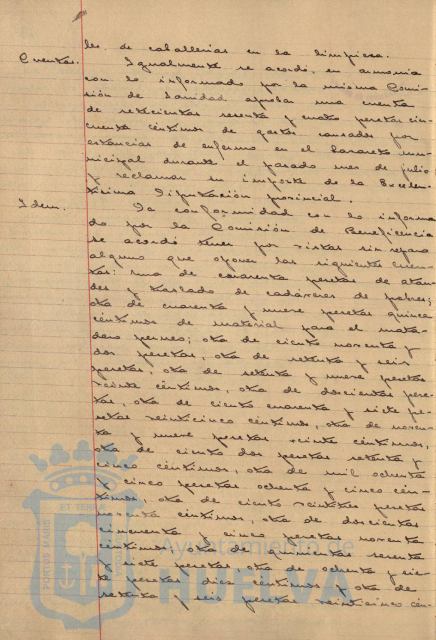 les de caballerias en la limpieza.
Cuentas. Igualmente se acordó, en armonia
con lo informado por la misma Comi-
sión de Sanidad aprobar una cuenta
de setecientas sesenta y cuatro pesetas cin-
cuenta céntimos de gastos causados por
estancias de enfermo en el Lazareto mu-
nicipal durante el pasado mes de julio
y reclamar su importe de la Excelen-
tísima Diputación provincial.
Idem. De conformidad con lo informa-
do por la Comisión de Beneficencia
se acordó tener por vistas sin reparo
alguno que oponer las siguientes cuen-
tas: una de cuarenta pesetas de atau-
des y traslado de cadáveres de pobres;
otra de cuarenta y nueve pesetas quince
céntimos de material para el mata-
dero perros; otra de ciento noventa y
dos pesetas, otra de setenta y seis
pesetas, otra de setenta y nueve pesetas
veinte céntimos, otra de doscientas pese-
tas, otra de ciento cuarenta y siete pe-
setas veinticinco céntimos, otra de noven-
ta y nueve pesetas veinte céntimos,
otra de ciento dos pesetas setenta y
cinco céntimos, otra de mil ochenta
y cinco pesetas ochenta y cinco cén-
timos, otra de ciento veintitres pesetas
noventa céntimos, otra de doscientas
cincuenta y cinco pesetas noventa
céntimos, otra de quinientas sesenta
y siete pesetas, otra de ochenta y sie-
te pesetas diez céntimos y otra de
setenta y seis pesetas veinticinco cén-
PORTUS MARIS ET TERRAE
Ayuntamiento de
HUELVA